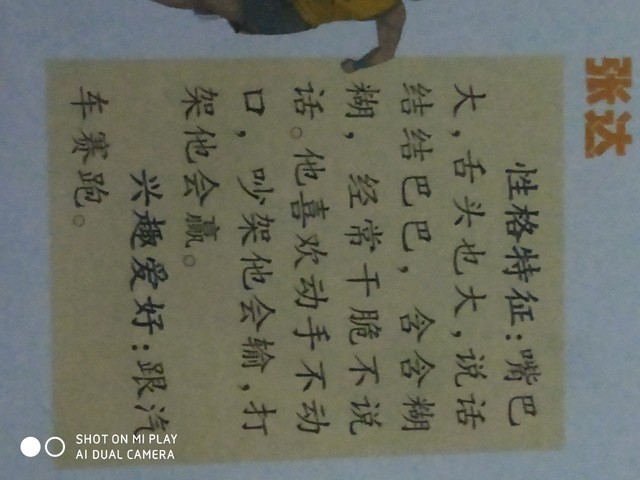 张达
性格特征：嘴巴
大，舌头也大，说话
结结巴巴，含含糊
糊，经常干脆不说
话。他喜欢动手不动
口，吵架他会输，打
架他会赢。
兴趣爱好：跟汽
车赛跑。
SHOT ON MI PLAY
AI DUAL CAMERA